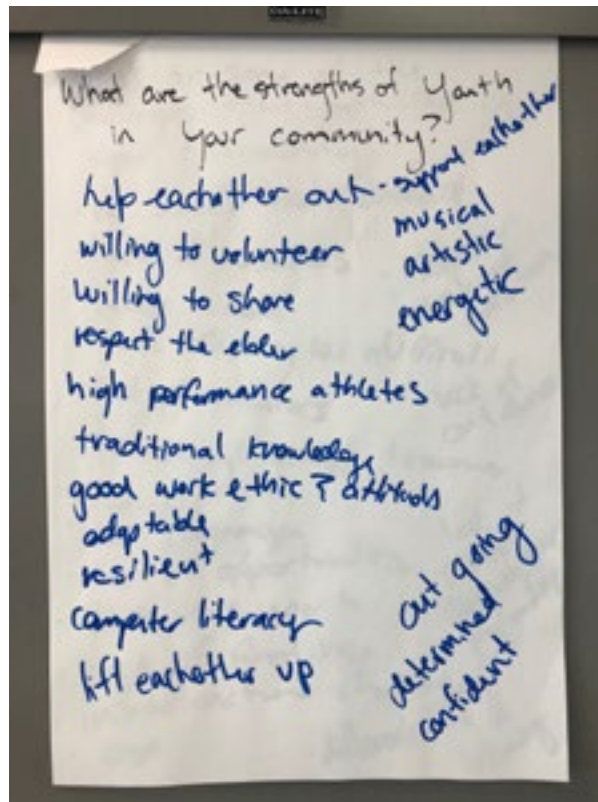 What are the strengths of Youth
in your community?
help eachother out - support eachother
willing to volunteer
willing to share
respect the elder
high performance athletes
traditional knowledge
good work ethic & attitude
adaptable
resilient
computer literacy
lift eachother up
musical
artistic
energetic
out going
determined
confident